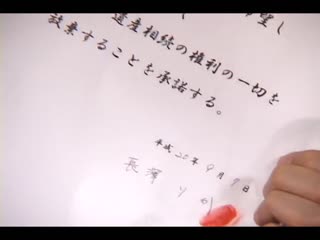 望し
遺産相続の権利の一切を
放棄することを承諾する。
平成20年9月9日
長澤